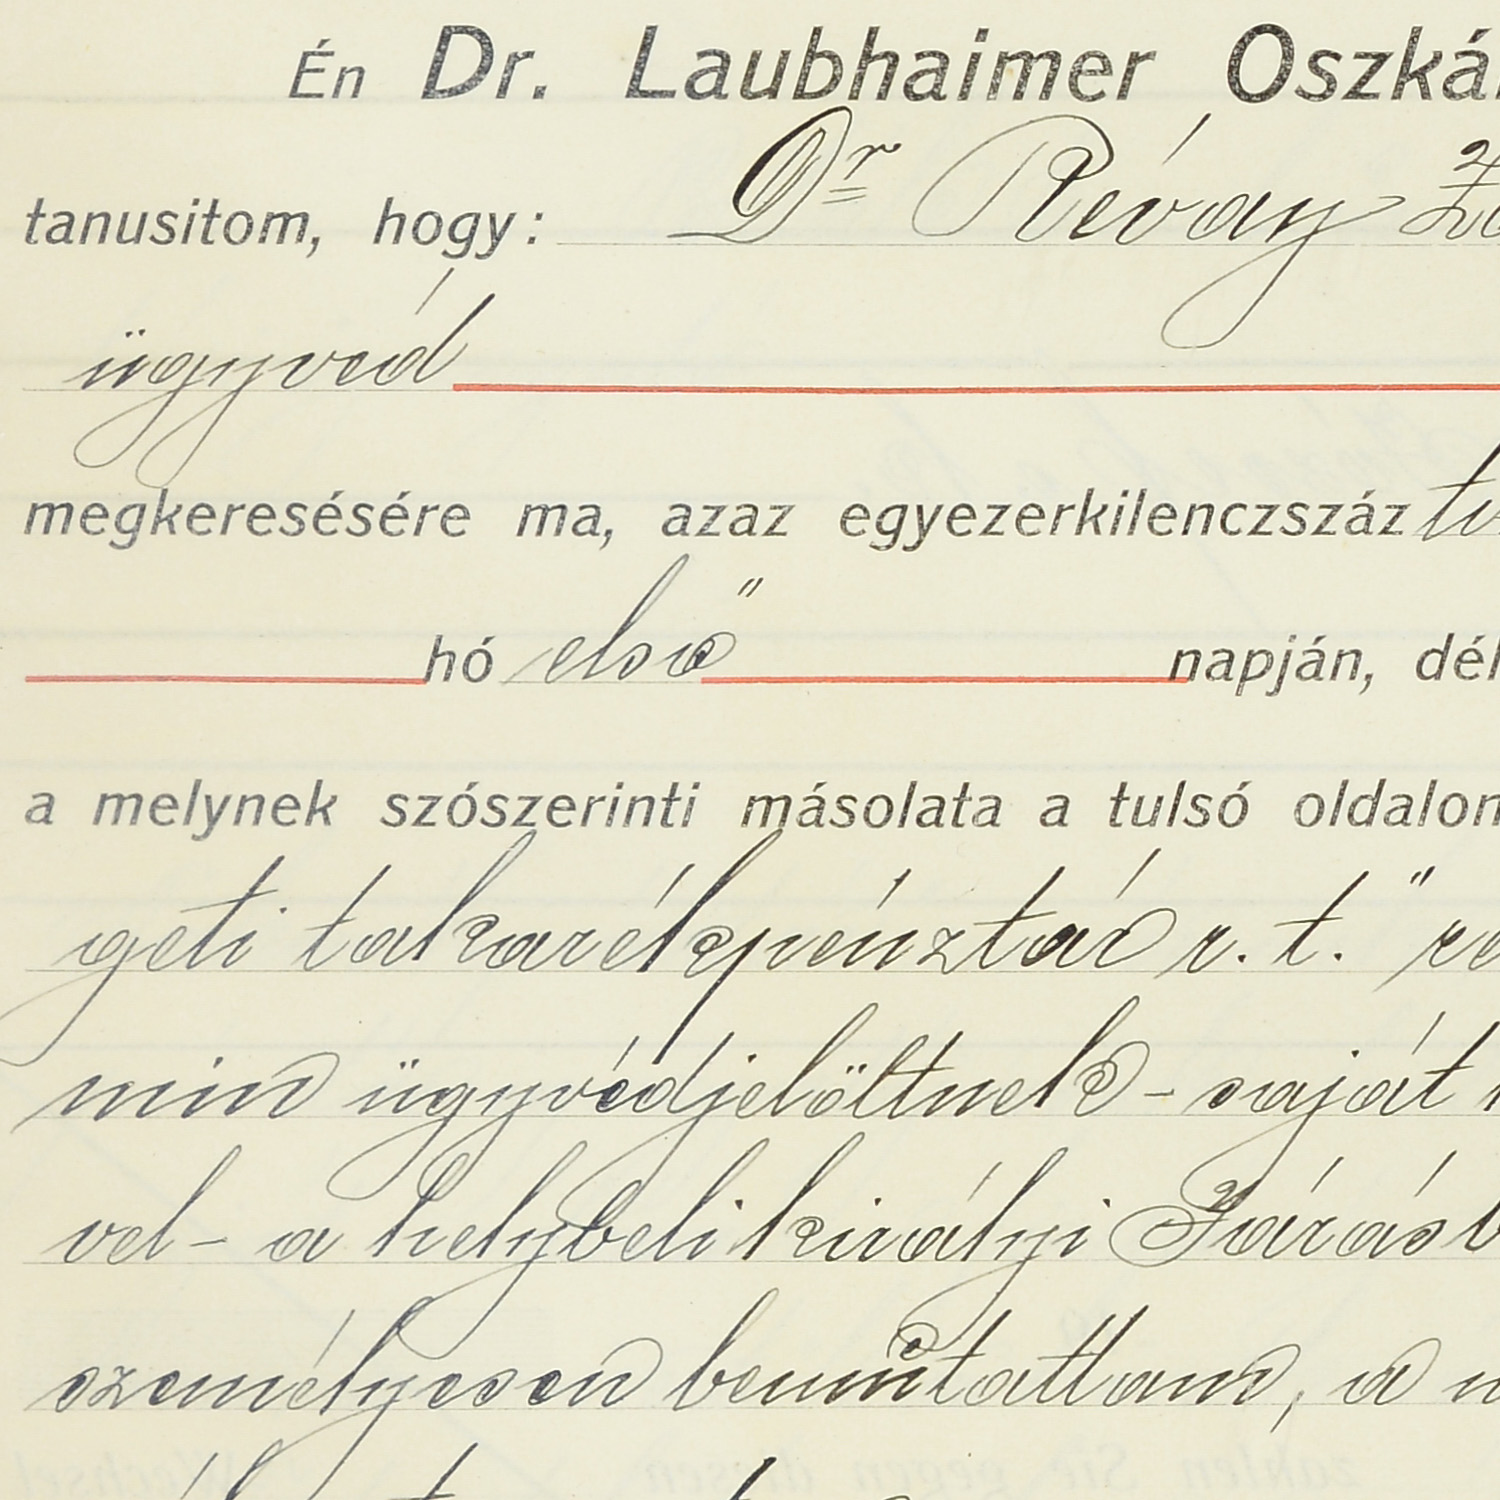 Én Dr. Laubhaimer Oszká
tanusitom, hogy: Dr Révay
ügyvéd
megkeresésére ma, azaz egyezerkilenczszáz
hó első napján, dél
a melynek szószerinti másolata a tulsó oldalon
geti takarékpénztár r. t."
min ügyvédjelöltnek - saját
vel - a helybeli királyi Járásb
személyesen bemutattam, a